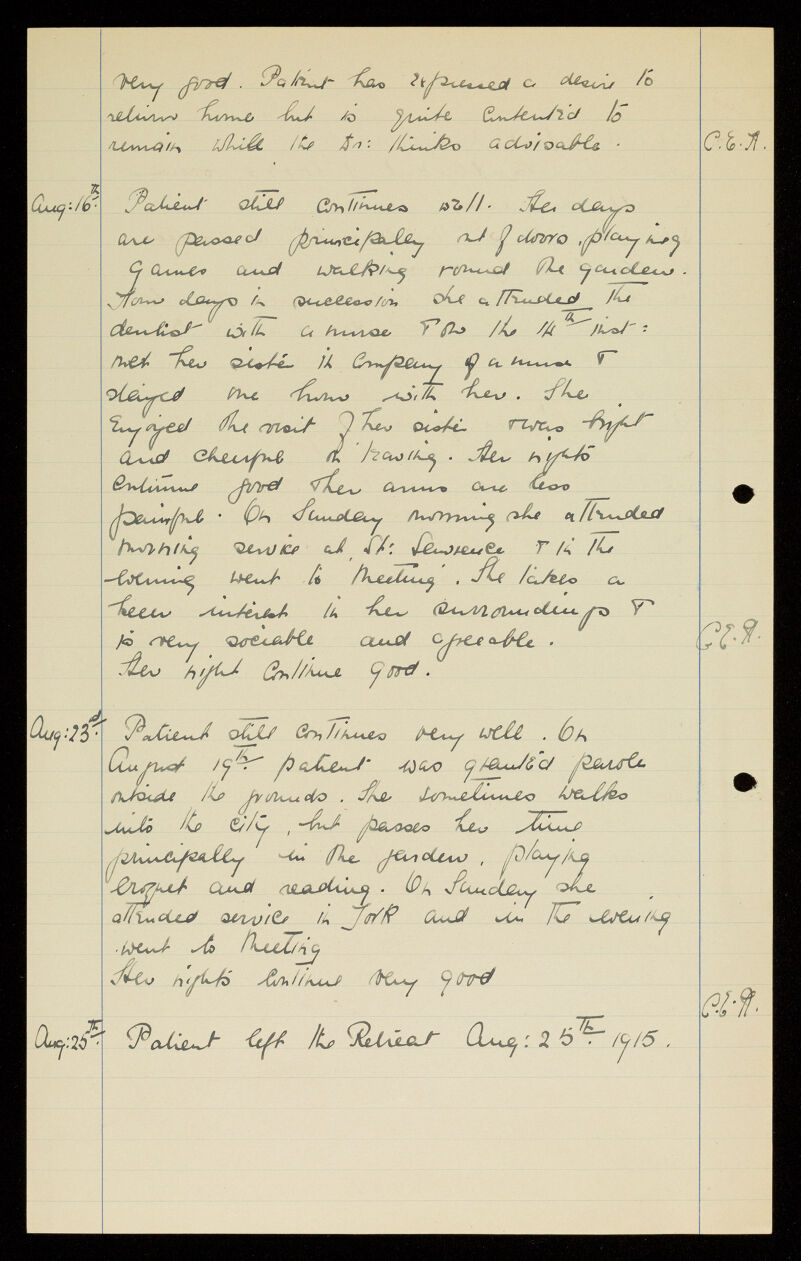 very good. Patient has expressed a desire to
return home but is quite contented to
remain while the Dr: thinks advisable.
C.E.A.
Aug: 16th. Patient still continues well. Her days
are passed principally out of doors, playing
games and walking round the garden.
Four days in succession she attended the
dentist with a nurse & on the 14th inst:
met her sister in company of a nurse &
stayed one hour with her. She
enjoyed the visit of her sister & was bright
and cheerful on leaving. Her nights
continue good & her arms are less
painful. On Sunday morning she attended
morning service at St: Lawrence & in the
evening went to Meeting. She takes a
keen interest in her surroundings &
is very sociable and agreeable.
C.E.A.
Her night continue good.
Aug: 23d. Patient still continues very well. On
August 19th. patient was granted parole
outside the grounds. She sometimes walks
into the city, but passes her time
principally in the garden, playing
croquet and reading. On Sunday she
attended service in York and in the evening
went to Meeting
Her nights continue very good
C.E.A.
Aug: 25th. Patient left the Retreat Aug: 25th. 1915.